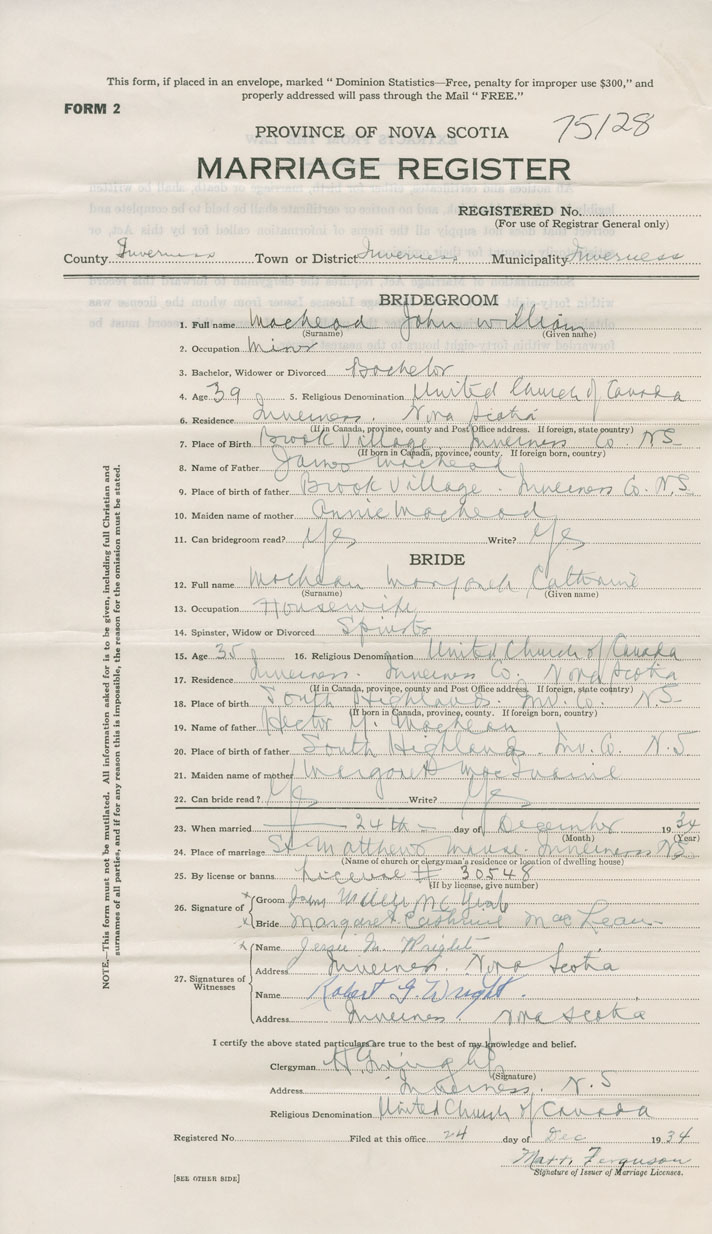 This form, if placed in an envelope, marked " Dominion Statistics—Free, penalty for improper use $300," and
properly addressed will pass through the Mail " FREE."
FORM 2
75128
PROVINCE OF NOVA SCOTIA
MARRIAGE REGISTER
REGISTERED No.
(For use of Registrar General only)
County Inverness Town or District Inverness Municipality Inverness
BRIDEGROOM
1. Full name John William
(Surname) (Given name)
2. Occupation Miner
3. Bachelor, Widower or Divorced Bachelor
4. Age 39 5. Religious Denomination United Church of Canada
6. Residence Inverness. Nova Scotia
(If in Canada, province, county and Post Office address. If foreign, state county)
7. Place of Birth Brook Village Inverness Co NS
(If born in Canada, province, county. If foreign born, country)
8. Name of Father James
9. Place of birth of father Brook Village. Inverness Co. N.S
10. Maiden name of mother Annie
11. Can bridegroom read? Yes Write? Yes
BRIDE
12. Full name MacLean Margaret Catherine
(Surname) (Given name)
13. Occupation Housewife
14. Spinster, Widow or Divorced Spinster
15. Age 35 16. Religious Denomination United Church of Canada
17. Residence Inverness. Inverness Co. Nova Scotia
(If in Canada, province, county and Post Office address. If foreign, state county)
18. Place of birth South Highlands. Inv. Co. N.S
(If born in Canada, province, county. If foreign born, country)
19. Name of father Hector MacLean
20. Place of birth of father South Highlands. Inv. Co. N.S
21. Maiden name of mother Margaret
22. Can bride read? Yes Write? Yes
23. When married 24th day of December 1934
(Month) (Year)
24. Place of marriage St Matthews Manse. Inverness NS
(Name of church or clergyman's residence or location of dwelling house)
25. By license or banns License # 30548
(If by license, give number)
26. Signature of
x Groom
x Bride Margaret Catherine MacLean
27. Signatures of Witnesses
x Name Jessie M. Wright
Address Inverness. Nova Scotia
Name Robert G. Wright.
Address Inverness Nova Scotia
I certify the above stated particulars are true to the best of my knowledge and belief.
Clergyman Wright
(Signature)
Address Inverness. N.S
Religious Denomination United Church of Canada
Registered No. Filed at this office 24 day of Dec 1934
Matt. Ferguson
Signature of Issuer of Marriage Licenses.
[SEE OTHER SIDE]
NOTE.—This form must not be mutilated. All information asked for is to be given, including full Christian and
surnames of all parties, and if for any reason this is impossible, the reason for the omission must be stated.